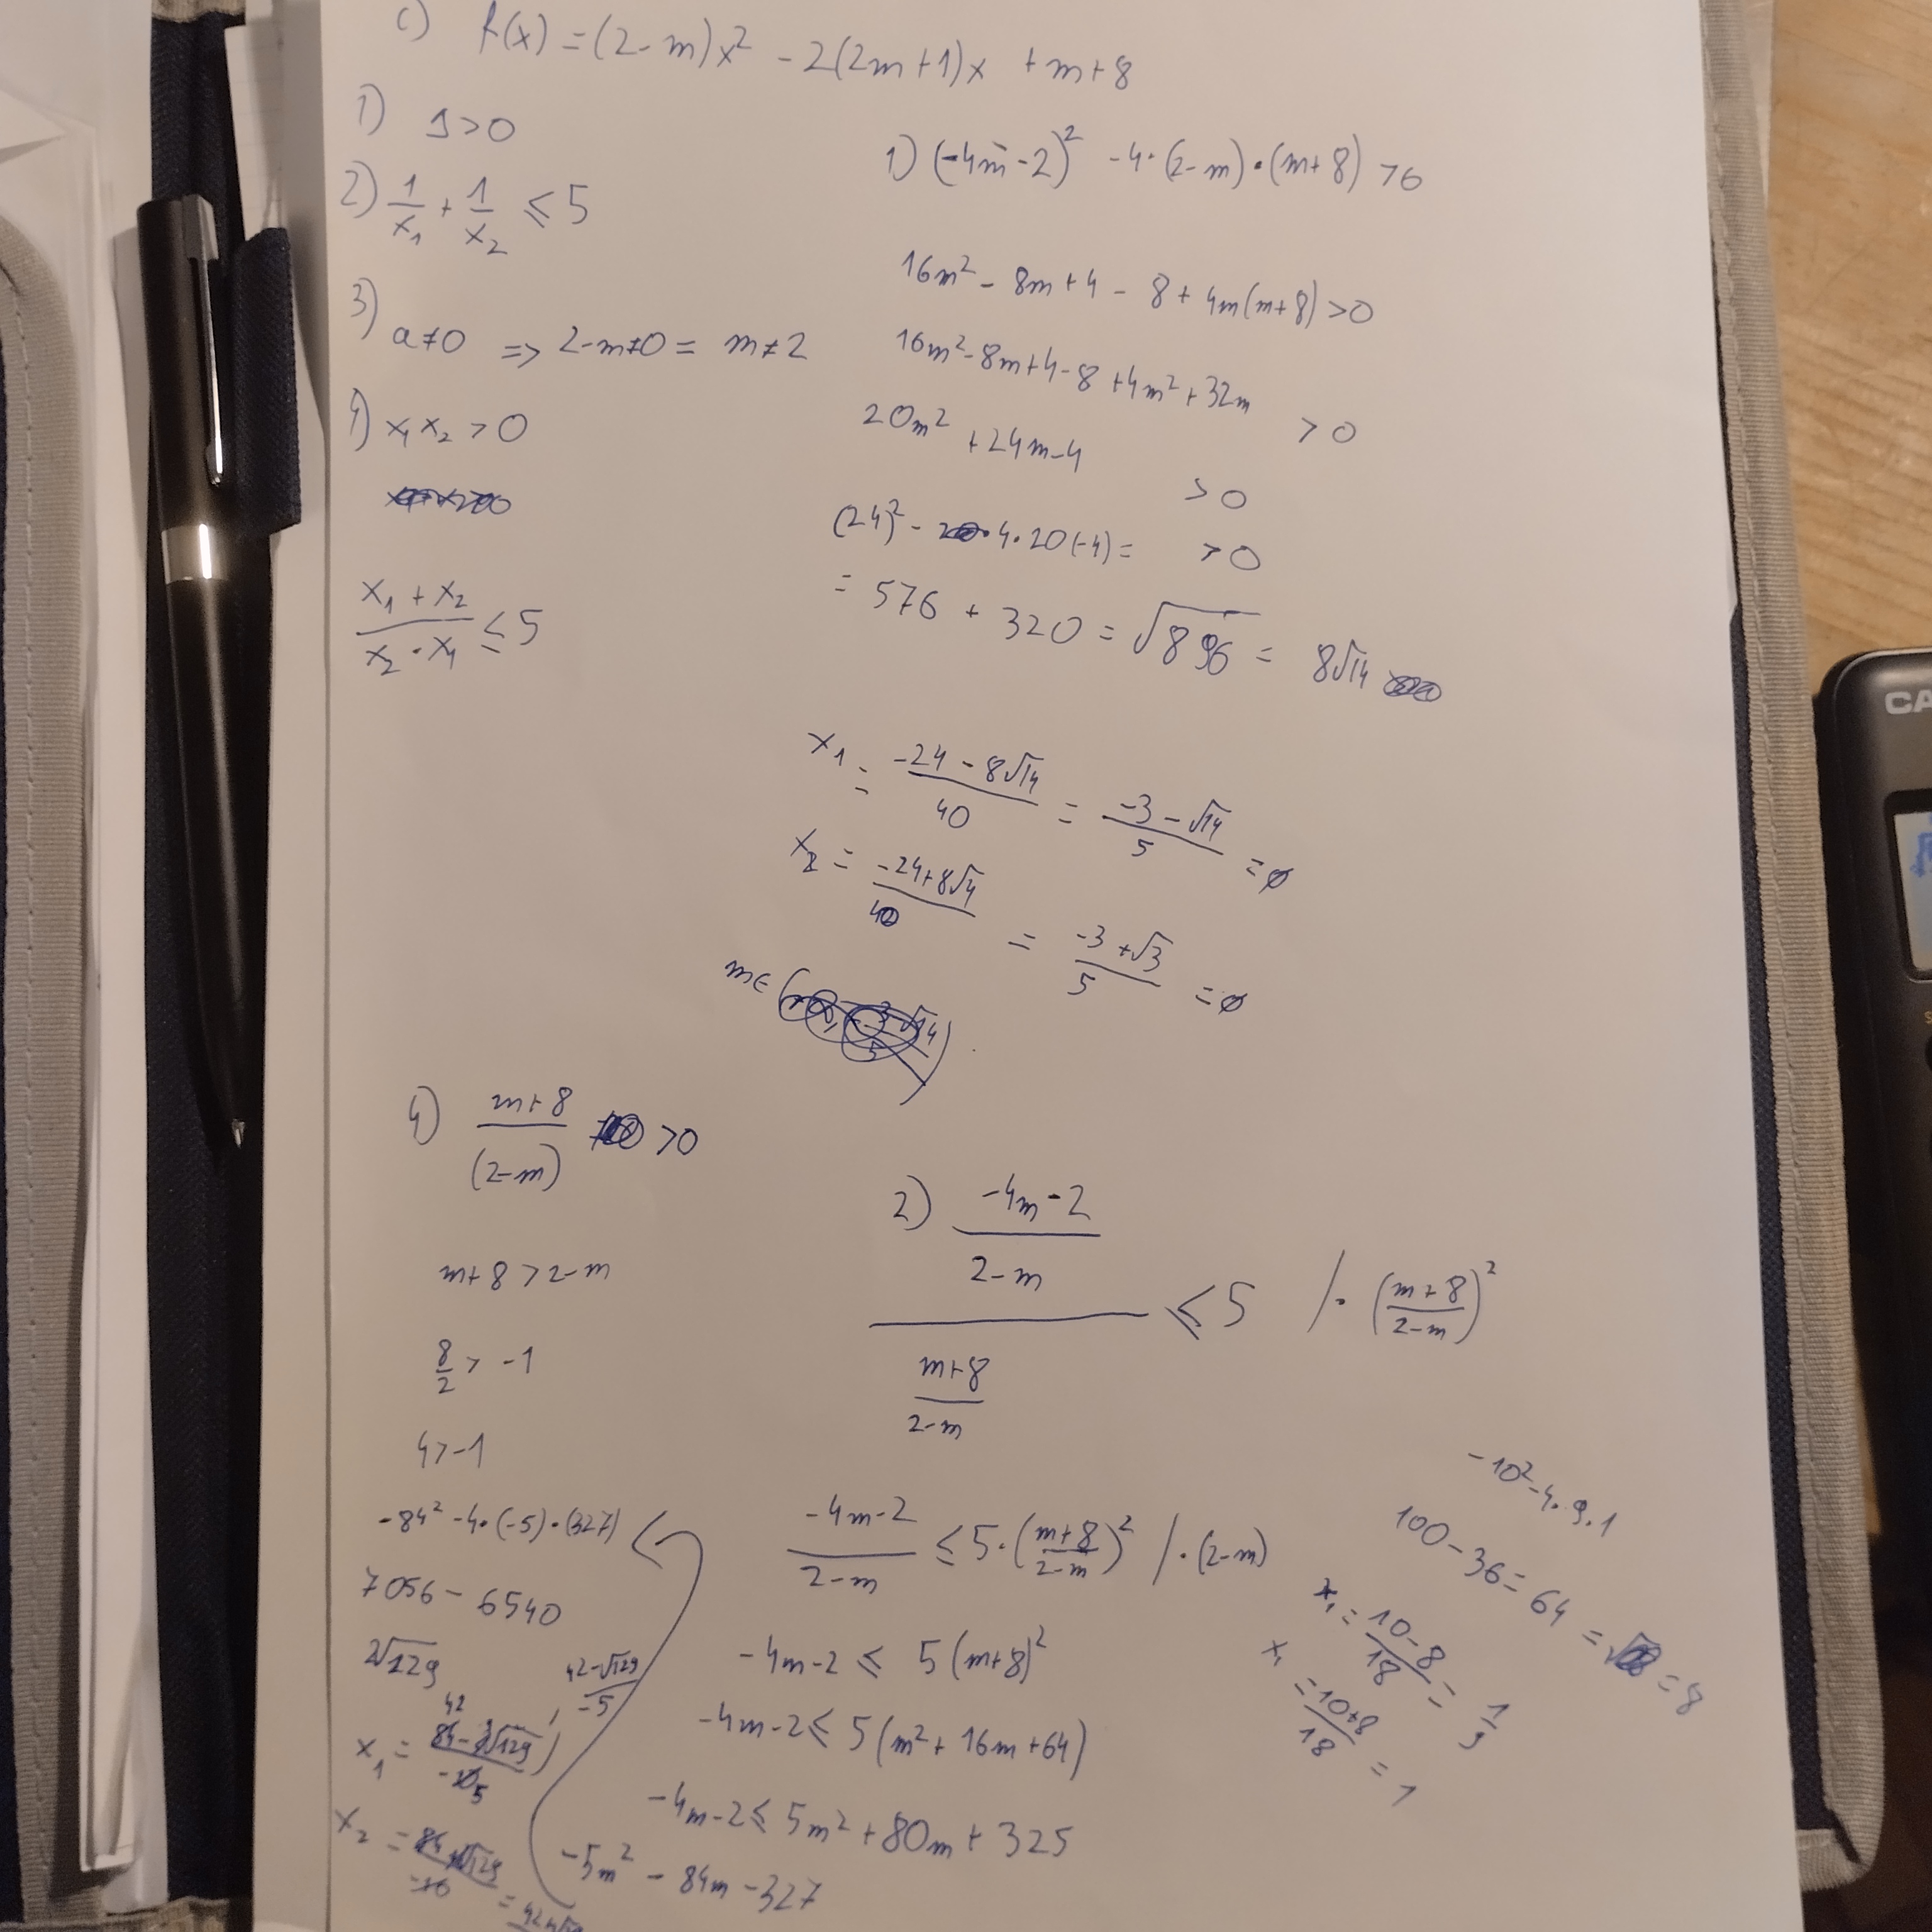 c) f(x) = (2-m)x² - 2(2m+1)x + m+8
1) Δ>0
2) 1/x₁ + 1/x₂ ≤ 5
3) a≠0 => 2-m≠0 = m≠2
4) x₁ x₂ > 0
(x₁ + x₂)/(x₂ · x₁) ≤ 5
1) (-4m-2)² -4·(2-m)·(m+8) >0
16m² - 8m+4 - 8 + 4m(m+8) >0
16m² - 8m+4-8 +4m² + 32m > 0
20m² + 24m - 4 > 0
(24)² - 4·20(-4) = > 0
= 576 + 320 = √896 = 8√14
x₁ = (-24 - 8√14)/40 = (-3 - √14)/5 = ∅
x₂ = (-24+8√4)/40 = (-3 + √3)/5 = ∅
m∈(
4) (m+8)/(2-m) >0
m+8 > 2-m
8/2 > -1
4 > -1
2) ((-4m-2)/(2-m))/((m+8)/(2-m)) ≤ 5 /· ((m+8)/(2-m))²
(-4m-2)/(2-m) ≤ 5·((m+8)/(2-m))² /·(2-m)
-4m-2 ≤ 5(m+8)²
-4m-2 ≤ 5(m² + 16m + 64)
-4m-2 ≤ 5m² + 80m + 325
-5m² - 84m - 327
-84² -4·(-5)·(327)
7056 - 6540
2√129
x₁ = , (42-√129)/-5
x₂ =
-10² - 4·9·1
100 - 36 = 64 = = 8
x₁ = (10-8)/18 = 1/9
x₁ = (10+8)/18 = 1
CA